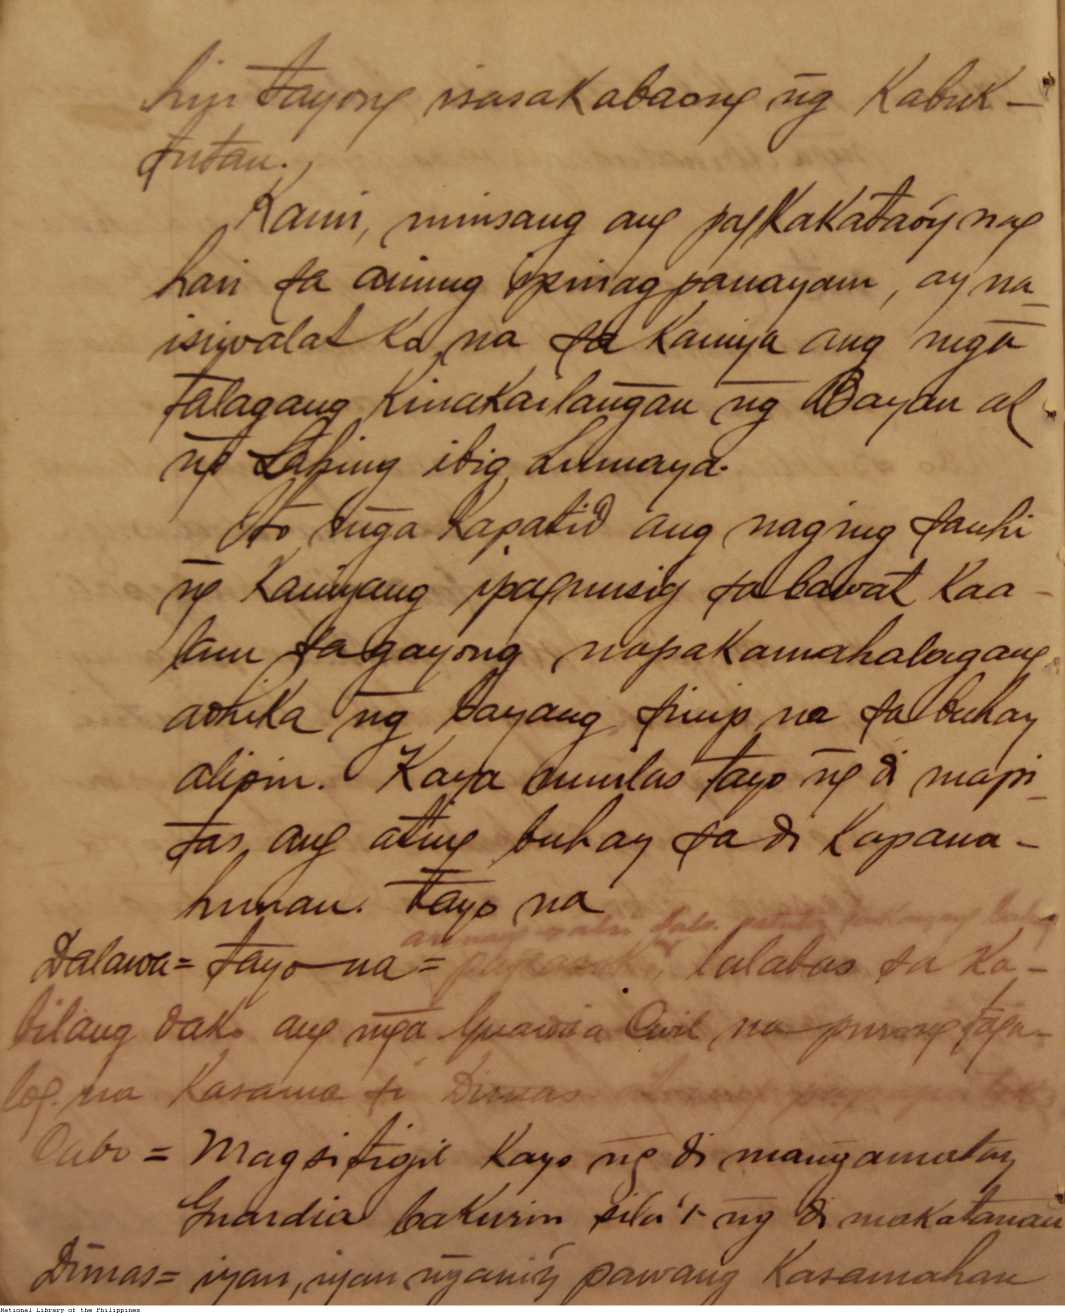 hin tayong isasakabaong ng Kabuk-
tutan.
Kami, minsang ang pagkakataóy nag
hari sa aming ipinagpanayam, ay na_
isiwalat Ko na sa Kaniya ang mga
talagang Kinakailangan ng Bayan at
ng Lahing ibig lumaya.
Ito mga Kapatid ang naging sanhi
ng Kaniyang ipagmusig sa bawat Kaa-
lam sa gayong napakamahalagang
adhika ng bayang siniip na sa buhay
alipin. Kaya umilas tayo ng di mapi_
tas ang ating buhay sa di Kapana-
hunan. Tayo na
Dalawa = tayo na = lalabas sa Ka-
bilang dako ang mga Guardia Civil na purong taga-
log na Kasama si Dimas
Cabo = Magsitigil Kayo ng di mangamatay
Guardia bakurin sila't ng di makatanan
Dimas = iyan, iyan nganiý pawang Kasamahan
National Library of the Philippines